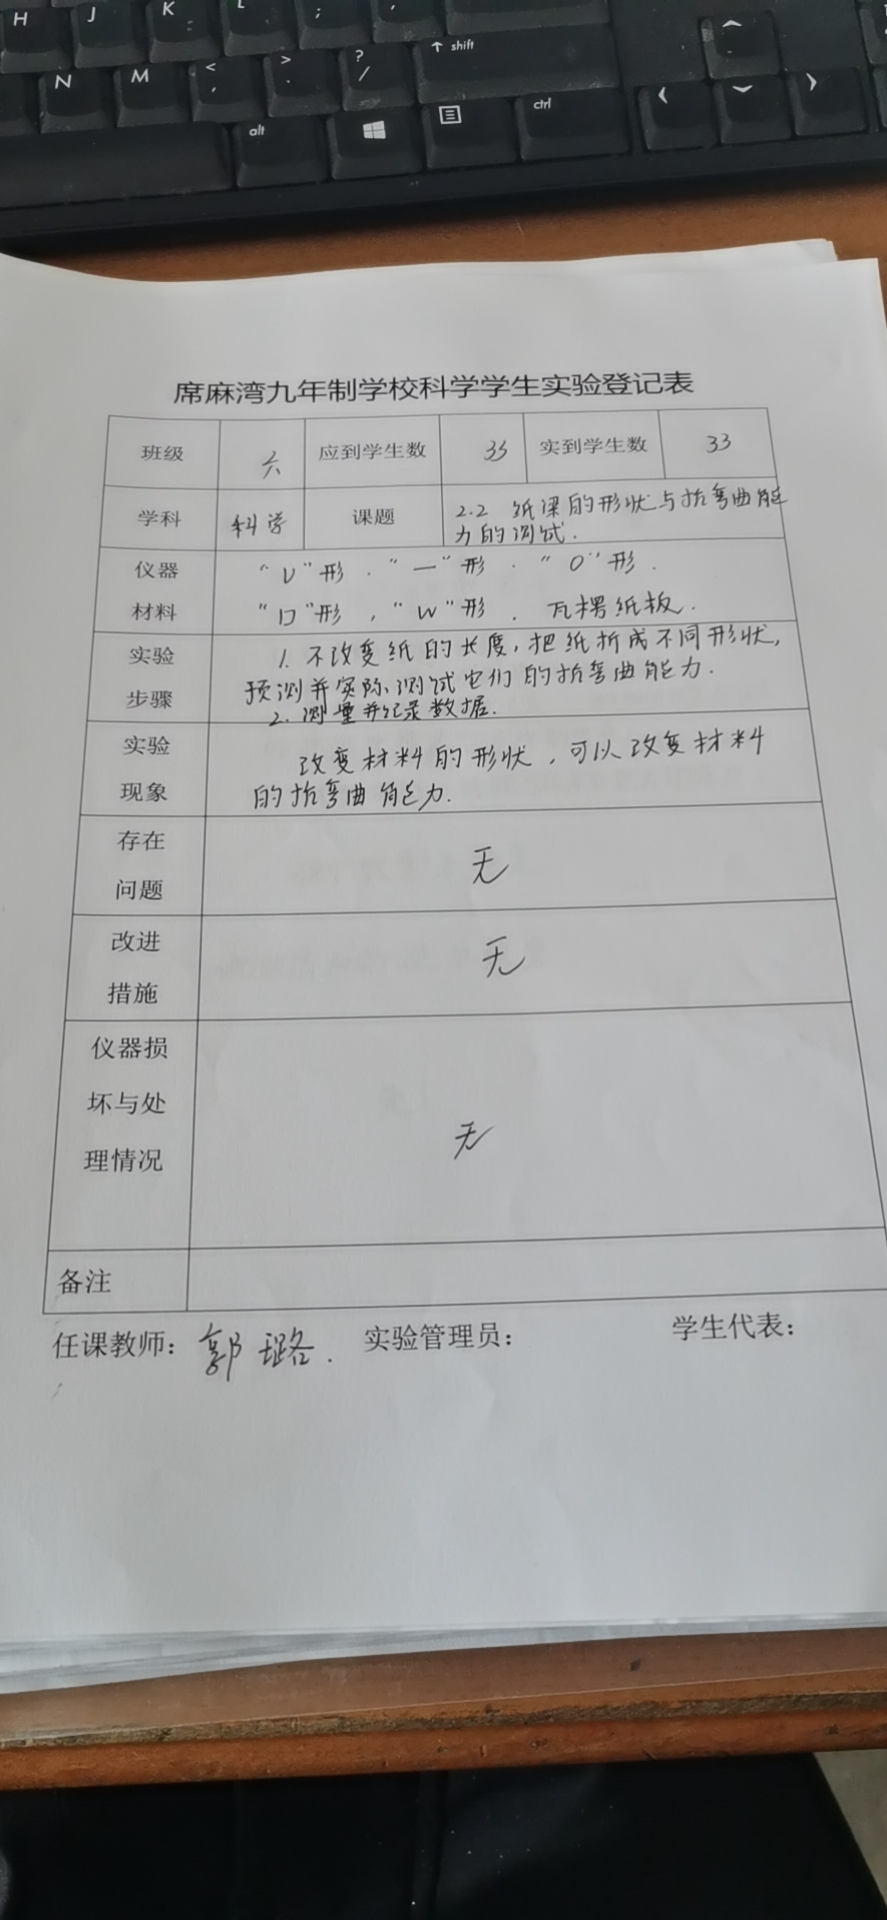 H J K L ; '
N M < , > . ? / ↑ shift
alt ctrl
席麻湾九年制学校科学学生实验登记表
班级 六 应到学生数 33 实到学生数 33
学科 科学 课题 2.2 纸梁的形状与抗弯曲能
力的测试.
仪器 "V"形 . "一"形 . "O"形 .
材料 "口"形 , "W"形 . 瓦楞纸板 .
实验 1. 不改变纸的长度, 把纸折成不同形状,
预测并实际测试它们的抗弯曲能力.
步骤 2. 测量并记录数据.
实验 改变材料的形状, 可以改变材料
现象 的抗弯曲能力.
存在
问题 无
改进
措施 无
仪器损
坏与处
理情况 无
备注
任课教师: 郭璐. 实验管理员: 学生代表: